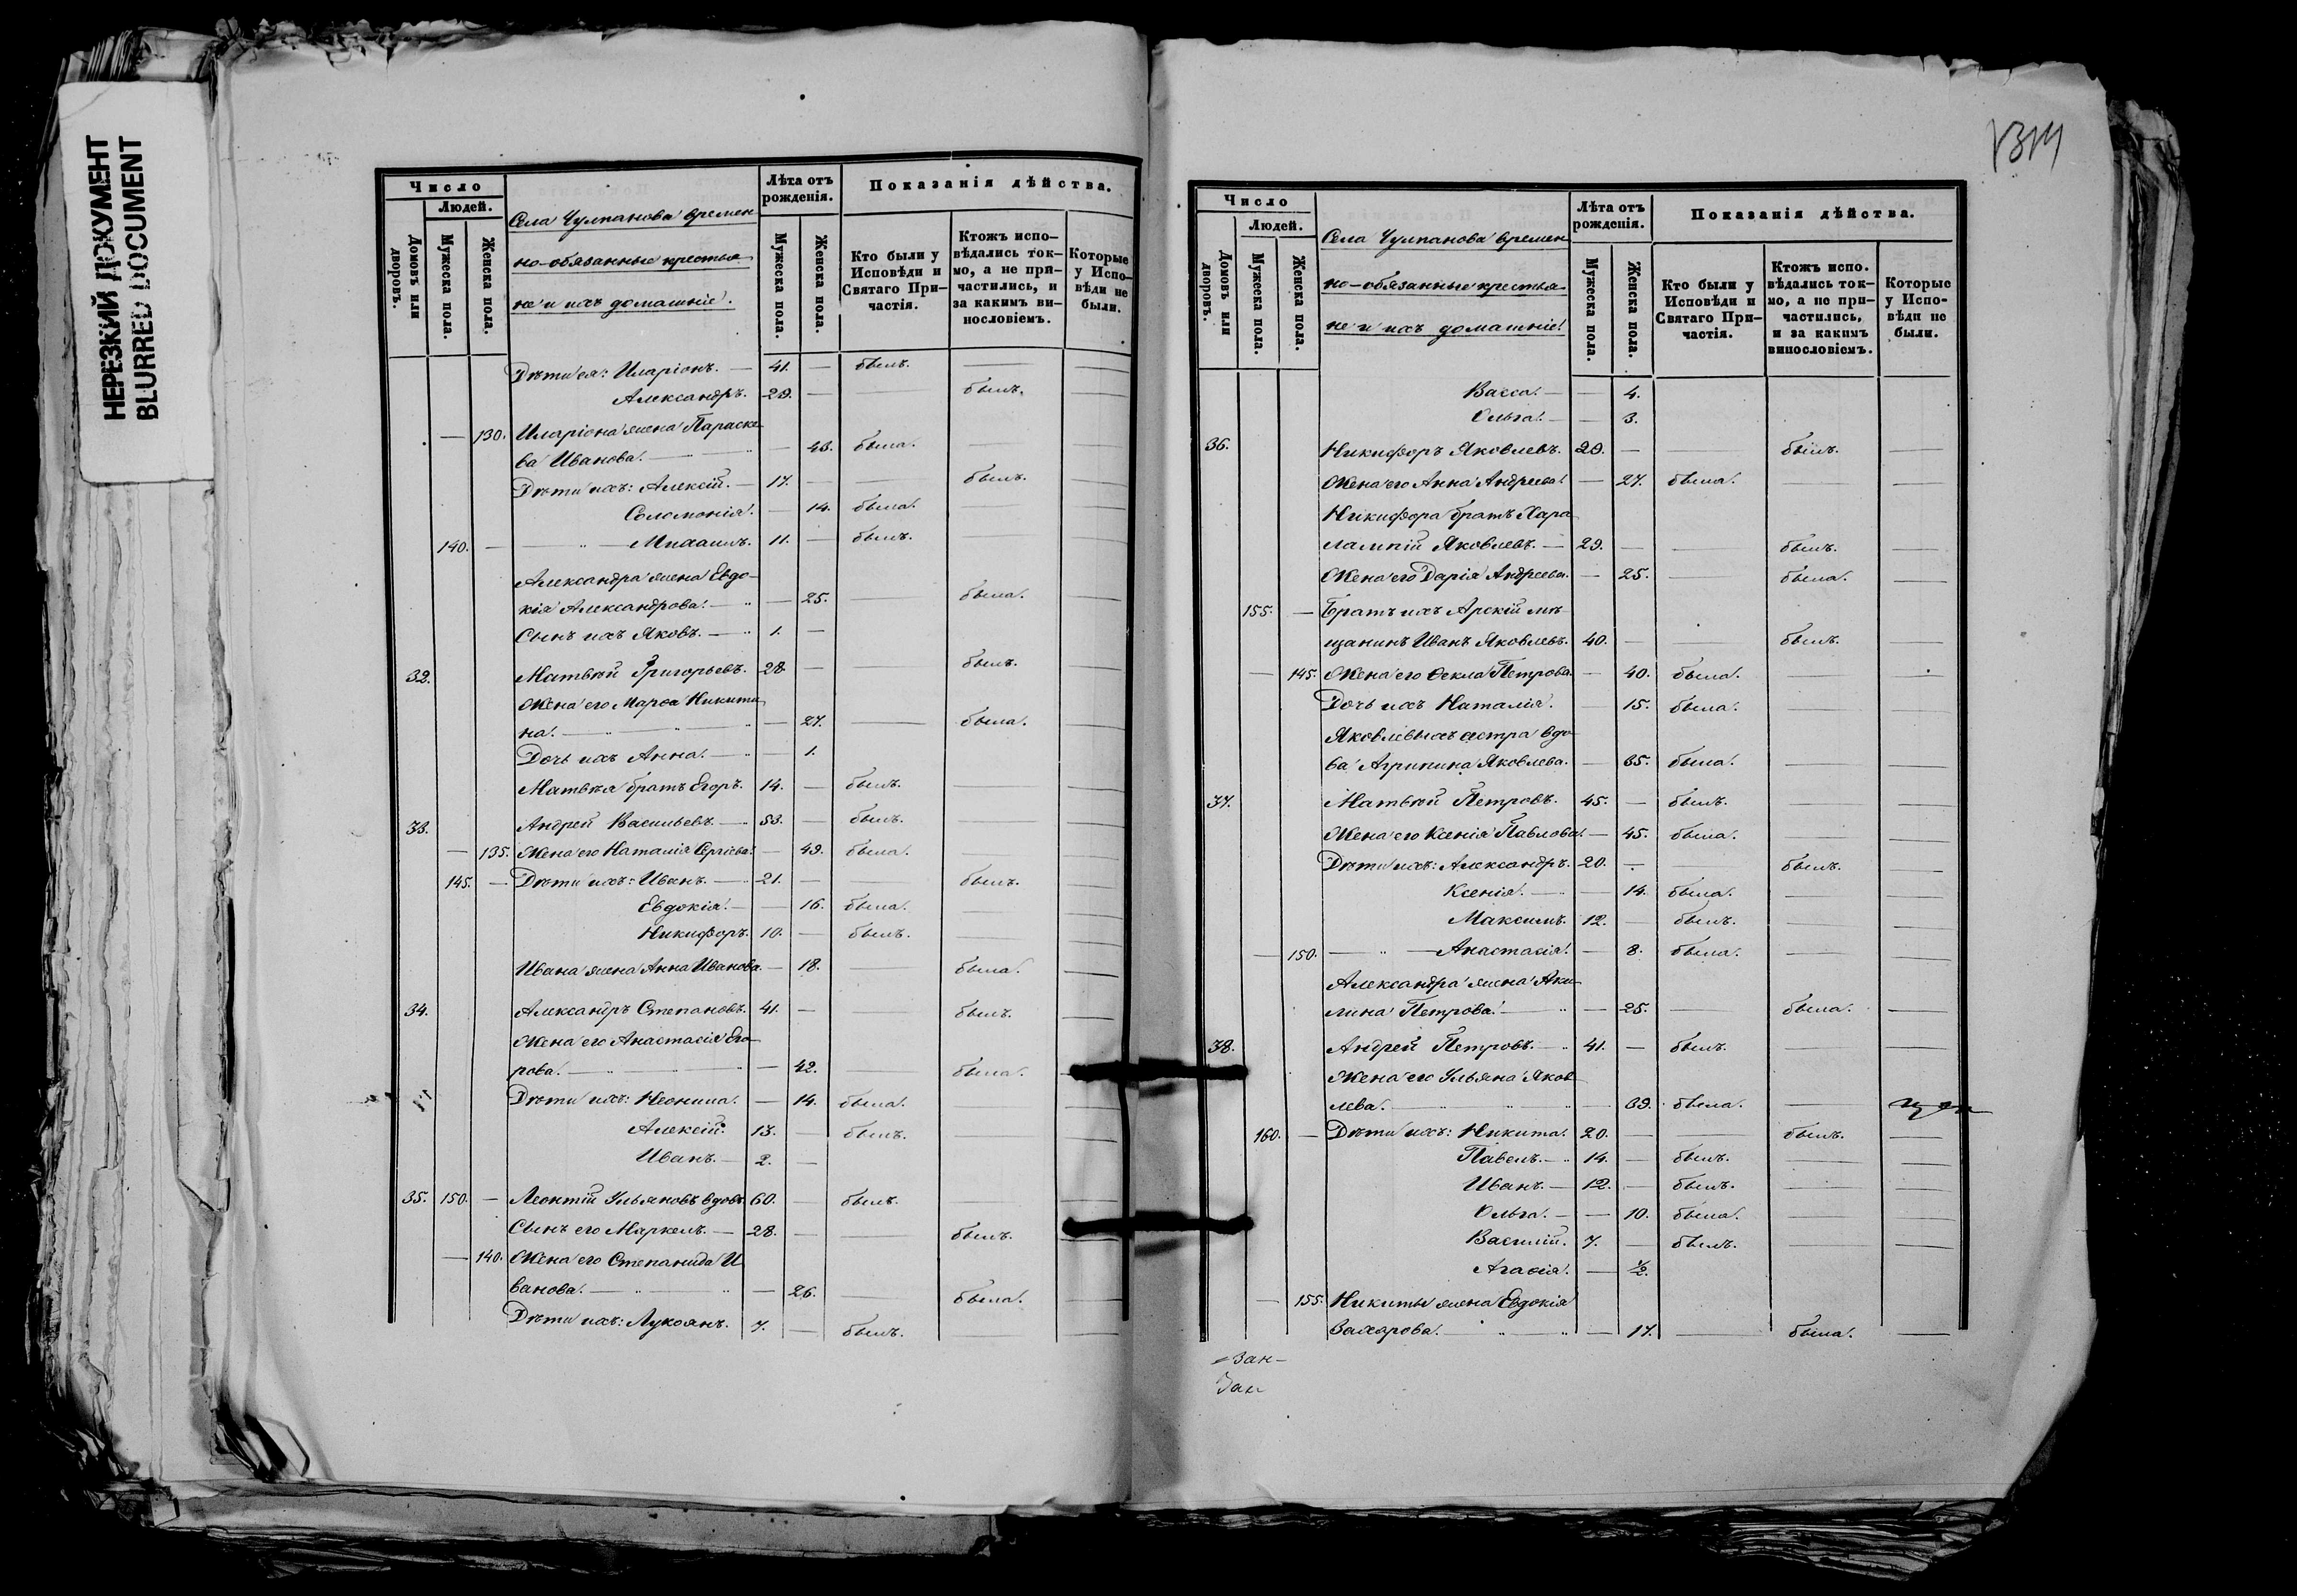 НЕРЕЗКИЙ ДОКУМЕНТ
BLURRED DOCUMENT
Число
Людей.
Домовъ или дворовъ.
Мужеска пола.
Женска пола.
Села Чулпанова времен
но-обязанные крестья
не и ихъ домашніе.
Лѣта отъ рожденія.
Мужеска пола.
Женска пола.
Показанія дѣйства.
Кто были у Исповѣди и Святаго Причастія.
Ктожъ исповѣдались токмо, а не причастились, и за какимъ винословіемъ.
Которые у Исповѣди не были.
Дѣти ея: Иларіонъ. — 41. — былъ. — —
Александръ. 29. — — былъ. —
— 130. Иларіона жена Параске
ва Иванова. — — 43. была. — —
Дѣти ихъ: Алексій. — 17. — — былъ. —
Соломонія. — 14. была. —
140. — — Михаилъ. 11. — былъ. —
Александра жена Евдо-
кія Александрова. — — 25. — была. —
Сынъ ихъ Яковъ. — 1. —
32. Матвѣй Григорьевъ. 28. — — былъ. —
Жена его Марѳа Никити
на. — — 27. — была. —
Дочь ихъ Анна. — — 1.
Матвѣя братъ Егоръ. 14. — былъ. — —
33. Андрей Васильевъ. — 53. — былъ. — —
— 135. Жена его Наталія Сергіева. — 49. была. — —
145. — Дѣти ихъ: Иванъ. — 21. — — былъ. —
Евдокія. — — 16. была. — —
Никифоръ. 10. — былъ. — —
Ивана жена Анна Иванова. — 18. — была. —
34. Александръ Степановъ. 41. — — былъ. —
Жена его Анастасія Его
рова. — — 42. — была. —
Дѣти ихъ: Неонила. — 14. была. — —
Алексій. 13. — былъ. — —
Иванъ. — 2. —
35. 150. — Леонтій Ульяновъ вдовъ. 60. — былъ. — —
Сынъ его Маркелъ. — 28. — — былъ. —
— 140. Жена его Степанида И
ванова. — — 26. — была. —
Дѣти ихъ: Лукоянъ. 7. — былъ. — —
Число
Людей.
Домовъ или дворовъ.
Мужеска пола.
Женска пола.
Села Чулпанова времен
но-обязанные крестья
не и ихъ домашніе
Лѣта отъ рожденія.
Мужеска пола.
Женска пола.
Показанія дѣйства.
Кто были у Исповѣди и Святаго Причастія.
Ктожъ исповѣдались токмо, а не причастились, и за какимъ винословіемъ.
Которые у Исповѣди не были.
Васса. — — 4.
Ольга. — — 3.
36. Никифоръ Яковлевъ. 29. — — былъ. —
Жена его Анна Андреева. — 27. была. — —
Никифора братъ Хара
лампій Яковлевъ. — 29. — — былъ. —
Жена его Дарія Андреева. — 25. — была. —
155. — Братъ ихъ Арскій мѣ
щанинъ Иванъ Яковлевъ. 40. — — былъ. —
— 145. Жена его Ѳекла Петрова. — 40. была. —
Дочь ихъ Наталія. — 15. была. — —
Яковлевыхъ сестра вдо
ва Агрипина Яковлева. — 35. была. — —
37. Матвѣй Петровъ. 45. — былъ. — —
Жена его Ксенія Павлова. — 45. была. — —
Дѣти ихъ: Александръ. 20. — — былъ. —
Ксенія. — — 14. была. — —
Максимъ. 12. — былъ. — —
— 150. — Анастасія. — 8. была. — —
Александра жена Аки
лина Петрова. — — 25. — была. —
38. Андрей Петровъ. — 41. — былъ. — —
Жена его Ульяна Яков
лева. — — 39. была. —
160. — Дѣти ихъ: Никита. 20. — — былъ. —
Павелъ. — 14. — былъ. — —
Иванъ. — 12. — былъ. — —
Ольга. — — 10. была. — —
Василій. 7. — былъ. — —
Агаѳія. — ½.
— 155. Никиты жена Евдокія
Захарова. — — 17. — была. —